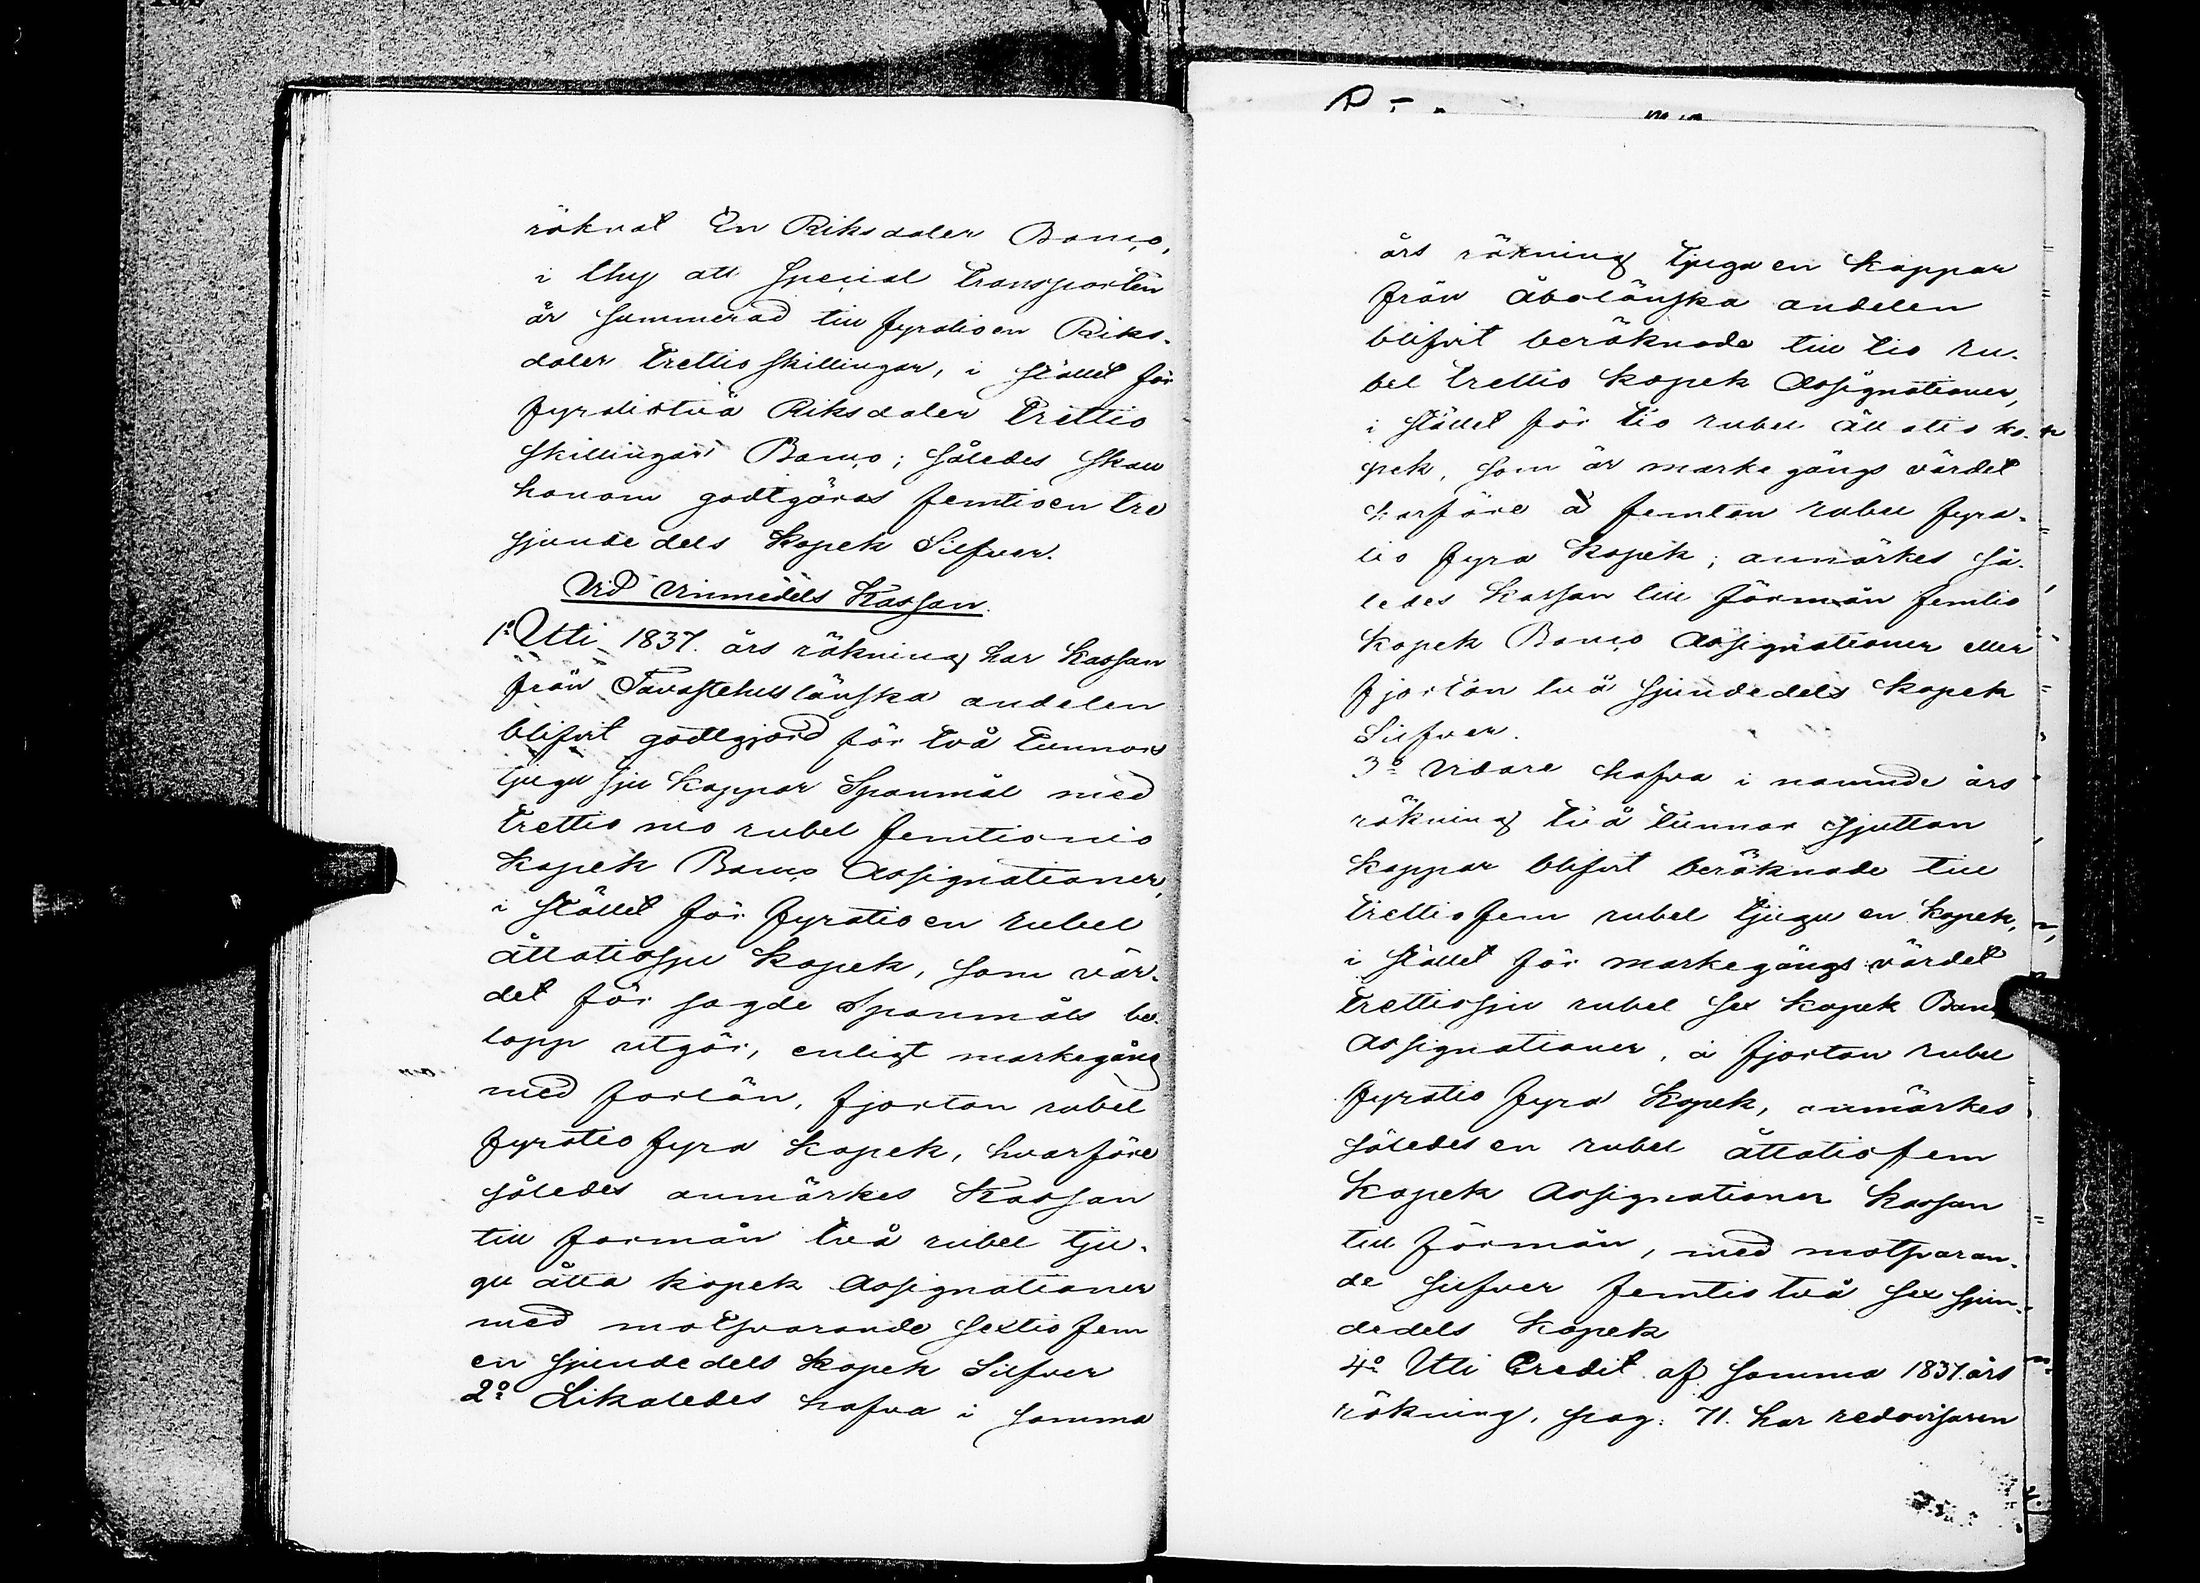 räknat En Riksdaler Banco,
i thy att special transporten
är summerad till fyratioen Riks-
daler trettio skillingar, i stället för
fyratiotvå Riksdaler trettio
skillingar Banco; således skall
honom godtgöras femtioen tre
sjundedels Kopek Silfver.
Vid Vinmedels Kassan.
1º Uti 1837. års räkning har Kassan
från Tavastehus länska andelen
blifvit godtgjord för två tunnor
tjugu sju Kappar Spanmål med
trettio nio rubel femtionio
Kopek Banco Assignationer,
i stället för fyratioen rubel
åttatiosju Kopek, som vär-
det för sagde Spanmåls be-
lopp utgör, enligt markegång
med forlön, fjorton rubel
fyratio fyra Kopek, hvarföre
således anmärkes Kassan
till förmån två rubel tju-
gu åtta kopek Assignationer
med motsvarande sextiofem
en sjundedels Kopek Silfver
2º Likaledes hafva i samma
års räkning tjuguen Kappar
från Åbolänska andelen
blifvit beräknade till tio ru-
bel trettio Kopek Assignationer,
i stället för tio rubel åttatio ko-
pek, som är markegångs värdet
därföre à femton rubel fyra-
tio fyra Kopek; anmärkes så-
ledes Kassan till förmån femtio
Kopek Banco Assignationer eller
fjorton två sjundedels Kopek
Silfver.
3º Vidare hafva i namnde års
räkning två tunnor sjutton
Kappar blifvit beräknade till
trettiofem rubel tjugu en Kopek,
i stället för markegångs värdet
trettiosju rubel sex Kopek Banco
Assignationer, à fjorton rubel
fyratio fyra Kopek, anmärkes
således en rubel åttatiofem
Kopek Assignationer Kassan
till förmån, med motsvaran-
de silfver femtiotvå sex sjun-
dedels Kopek
4º Uti Credit af samma 1837. års
räkning, pag: 71. har redovisaren